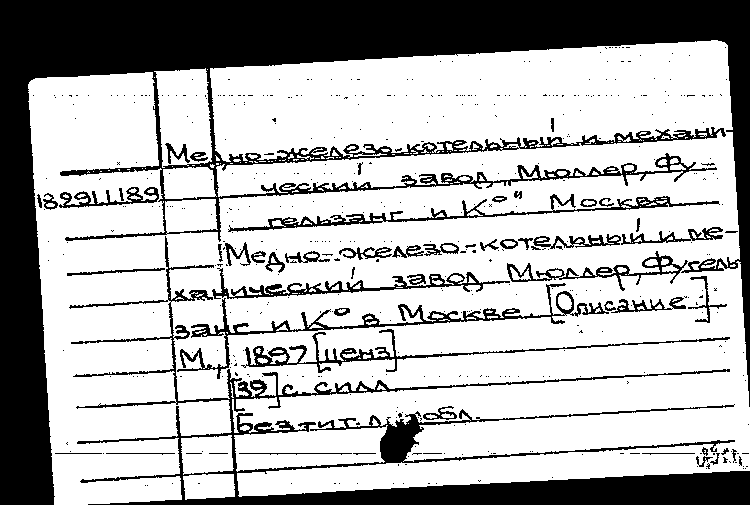 Медно-железо-котельный и механи-
ческий завод „Мюллер, Фу-
189911189
гельзанг и К°“ Москва
Медно-железо-котельный и ме-
ханический завод Мюллер, Фугель
занг и К° в Москве. [Описание]
М., 1897 [ценз]
[39] с. с илл.
Без тит. л. и обл.